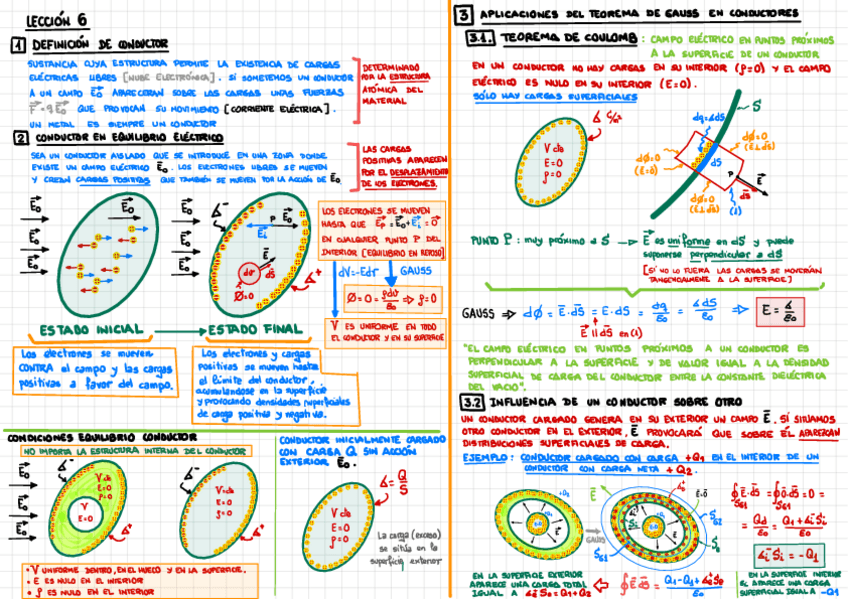 LECCIÓN 6
1 DEFINICIÓN DE CONDUCTOR
SUSTANCIA CUYA ESTRUCTURA PERMITE LA EXISTENCIA DE CARGAS
ELÉCTRICAS LIBRES [NUBE ELECTRÓNICA]. SI SOMETEMOS UN CONDUCTOR
A UN CAMPO E₀ APARECERÁN SOBRE LAS CARGAS UNAS FUERZAS
F = qE₀ QUE PROVOCAN SU MOVIMIENTO [CORRIENTE ELÉCTRICA].
UN METAL ES SIEMPRE UN CONDUCTOR
DETERMINADO
POR LA ESTRUCTURA
ATÓMICA DEL
MATERIAL
2 CONDUCTOR EN EQUILIBRIO ELÉCTRICO
SEA UN CONDUCTOR AISLADO QUE SE INTRODUCE EN UNA ZONA DONDE
EXISTE UN CAMPO ELÉCTRICO E₀. LOS ELECTRONES LIBRES SE MUEVEN
Y CREAN CARGAS POSITIVAS QUE TAMBIÉN SE MUEVEN POR LA ACCIÓN DE E₀.
LAS CARGAS
POSITIVAS APARECEN
POR EL DESPLAZAMIENTO
DE LOS ELECTRONES.
LOS ELECTRONES SE MUEVEN
HASTA QUE Ep = E₀ + Ei = 0
EN CUALQUIER PUNTO P DEL
INTERIOR [EQUILIBRIO EN REPOSO]
dV = -Edr
GAUSS
Ø = 0 = ρdV/ε₀ ⇒ ρ = 0
V ES UNIFORME EN TODO
EL CONDUCTOR Y EN SU SUPERFICIE
ESTADO INICIAL → ESTADO FINAL
Los electrones se mueven
CONTRA el campo y las cargas
positivas a favor del campo.
Los electrones y cargas
positivas se mueven hasta
el límite del conductor,
acumulándose en la superficie
y provocando densidades superficiales
de carga positiva y negativa.
CONDICIONES EQUILIBRIO CONDUCTOR
NO IMPORTA LA ESTRUCTURA INTERNA DEL CONDUCTOR
V cte
E=0
ρ=0
V
E=0
V cte
E=0
ρ=0
• V UNIFORME DENTRO, EN EL HUECO Y EN LA SUPERFICIE.
• E ES NULO EN EL INTERIOR
• ρ ES NULO EN EL INTERIOR
CONDUCTOR INICIALMENTE CARGADO
CON CARGA Q SIN ACCIÓN
EXTERIOR E₀.
V cte
E=0
ρ=0
La carga (exceso)
se sitúa en la
superficie exterior
3 APLICACIONES DEL TEOREMA DE GAUSS EN CONDUCTORES
3.1. TEOREMA DE COULOMB: CAMPO ELÉCTRICO EN PUNTOS PRÓXIMOS
A LA SUPERFICIE DE UN CONDUCTOR
EN UN CONDUCTOR NO HAY CARGAS EN SU INTERIOR (ρ=0) Y EL CAMPO
ELÉCTRICO ES NULO EN SU INTERIOR (E=0).
SÓLO HAY CARGAS SUPERFICIALES
V cte
E=0
ρ=0
dØ=0
(E=0)
dØ=0
(E⊥dS)
dØ=0
(E⊥dS)
PUNTO P: muy próximo a S → E es uniforme en dS y puede
suponerse perpendicular a dS
[SI NO LO FUERA LAS CARGAS SE MOVERÍAN
TANGENCIALMENTE A LA SUPERFICIE]
GAUSS ⇒ dØ = E·dS = E·dS = dq/ε₀ = σdS/ε₀ ⇒ E = σ/ε₀
E ∥ dS en (1)
"EL CAMPO ELÉCTRICO EN PUNTOS PRÓXIMOS A UN CONDUCTOR ES
PERPENDICULAR A LA SUPERFICIE Y DE VALOR IGUAL A LA DENSIDAD
SUPERFICIAL DE CARGA DEL CONDUCTOR ENTRE LA CONSTANTE DIELÉCTRICA
DEL VACÍO".
3.2 INFLUENCIA DE UN CONDUCTOR SOBRE OTRO
UN CONDUCTOR CARGADO GENERA EN SU EXTERIOR UN CAMPO E. SI SITUAMOS
OTRO CONDUCTOR EN EL EXTERIOR, E PROVOCARÁ QUE SOBRE ÉL APAREZCAN
DISTRIBUCIONES SUPERFICIALES DE CARGA.
EJEMPLO: CONDUCTOR CARGADO CON CARGA +Q1 EN EL INTERIOR DE UN
CONDUCTOR CON CARGA NETA +Q2.
GAUSS
∮E·dS = ∮0·dS = 0 =
= Q/ε₀ = Q1+σiSi/ε₀
σiSi = -Q1
EN LA SUPERFICIE EXTERIOR
APARECE UNA CARGA TOTAL
IGUAL A σeSe = Q1+Q2
EN LA SUPERFICIE INTERIOR
Si APARECE UNA CARGA
SUPERFICIAL IGUAL A -Q1